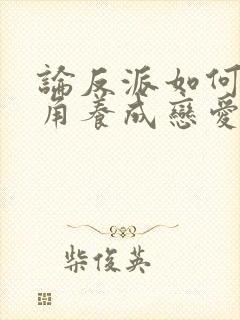 論反派如何
用養成戀愛
柴俊英